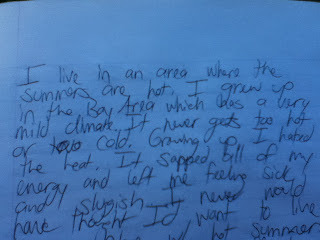 I live in an area where the
summers are hot. I grew up
in the Bay Area which has a very
mild climate. It never gets too hot
or too cold. Growing up I hated
the heat. It sapped all of my
energy and left me feeling sick
and slugish. I never would
have thought I'd want to live
hot summers